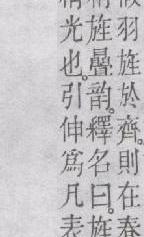 羽旌於齊。則在春
旌疊韵。釋名曰。旌
光也。引伸爲凡表